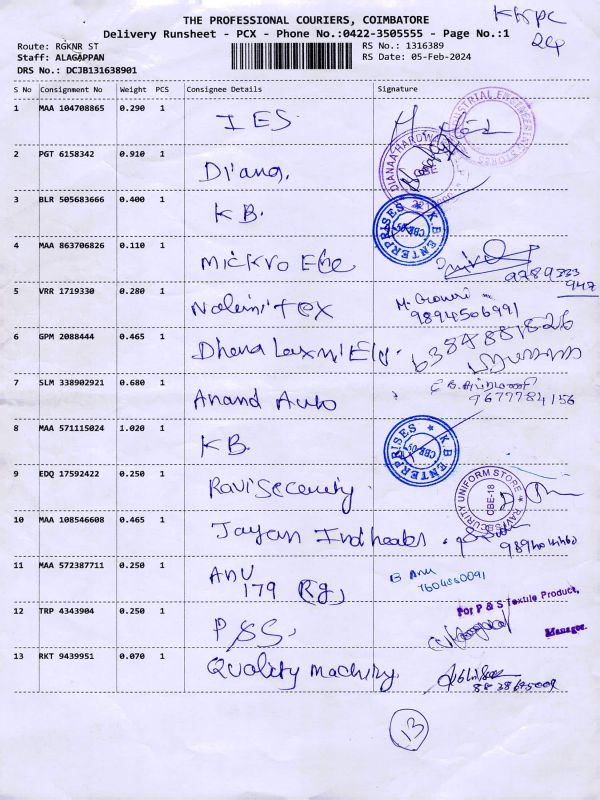 THE PROFESSIONAL COURIERS, COIMBATORE
Delivery Runsheet - PCX - Phone No.:0422-3505555 - Page No.:1
Route: RGKNR ST
RS No.: 1316389
Staff: ALAGAPPAN
RS Date: 05-Feb-2024
DRS No.: DCJB131638901
24
S No Consignment No Weight PCS Consignee Details Signature
1 MAA 104708865 0.290 1 IES
INDUSTRIAL ENGINEERING STORES
2 PGT 6158342 0.910 1 Diana.
3 BLR 505683666 0.400 1 K B.
K.B. ENTERPRISES CBE-05
4 MAA 863706826 0.110 1 Mickro Ele
9789333
947
5 VRR 1719330 0.280 1 Nalinitex
9894506991
6 GPM 2088444 0.465 1 Dhana Laxmi Ely.
6384881826
7 SLM 338902921 0.680 1 Anand Auto
9677784156
8 MAA 571115024 1.020 1 K B.
K.B. ENTERPRISES CBE-05
9 EDQ 17592422 0.250 1 Ravi Security
RAVI SECURITY UNIFORM STORE CBE-18
10 MAA 108546608 0.465 1 Jayan Indheabs
11 MAA 572387711 0.250 1 ANU
179 (Rg)
B Anu
7604860091
12 TRP 4343904 0.250 1 PSS.
For P & S Textile Product,
Manager.
13 RKT 9439951 0.070 1 Quality machiny
13